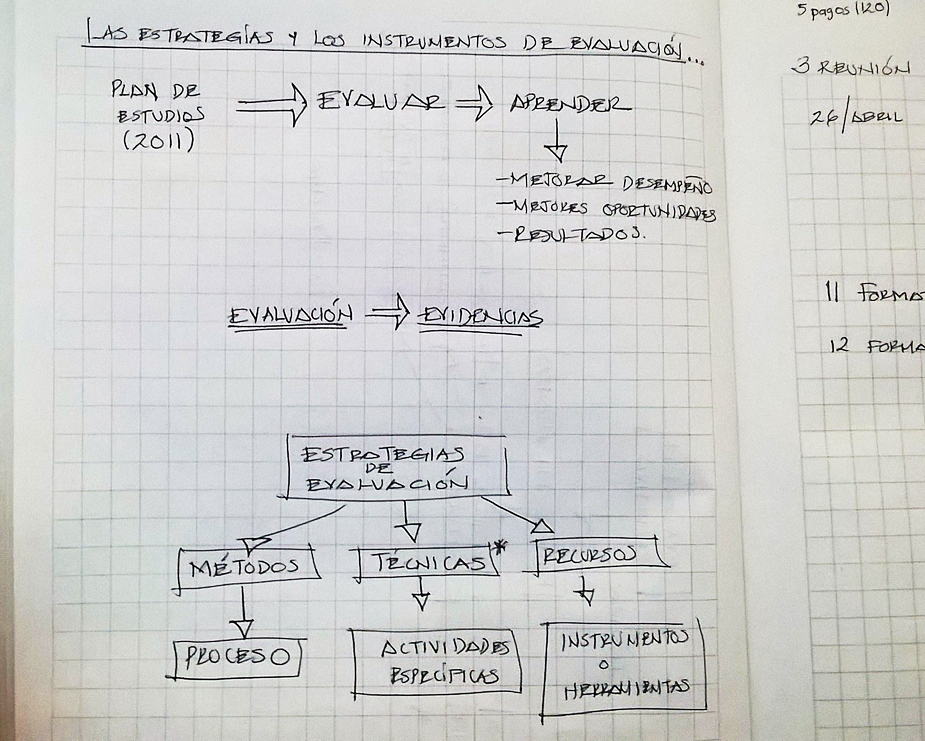 LAS ESTRATEGÍAS Y LOS INSTRUMENTOS DE EVALUACIÓN...
PLAN DE
ESTUDIOS
(2011)
EVALUAR
APRENDER
-MEJORAR DESEMPEÑO
-MEJORES OPORTUNIDADES
-RESULTADOS.
EVALUACIÓN
EVIDENCIAS
ESTRATEGIAS
DE
EVALUACIÓN
MÉTODOS
TÉCNICAS*
RECURSOS
PROCESO
ACTIVIDADES
ESPECÍFICAS
INSTRUMENTOS
O
HERRAMIENTAS
5 pagos (120)
3 REUNIÓN
26/ABRIL
11 FORMA
12 FORMA